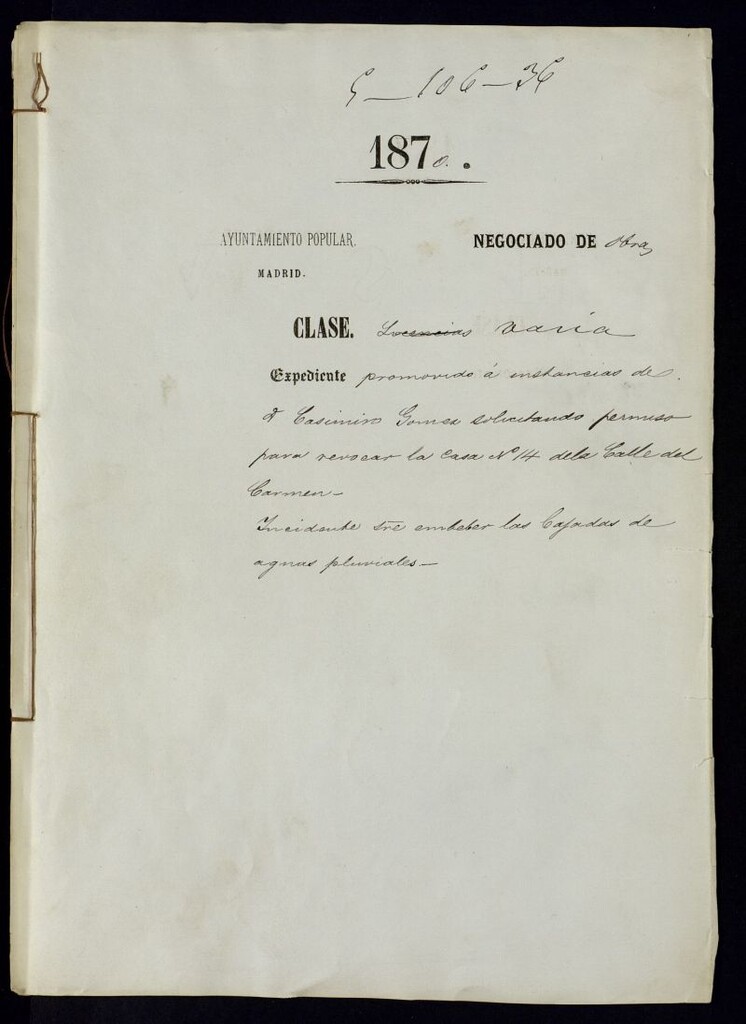 5-106-36
1870.
AYUNTAMIENTO POPULAR. NEGOCIADO DE Obras
MADRID.
CLASE. Licencias Varia
Expediente promovido á instancias de
D Casimiro Gomez solicitando permiso
para revocar la casa Nº 14 dela Calle del
Carmen-
Incidente sre embeber las Bajadas de
aguas pluviales-